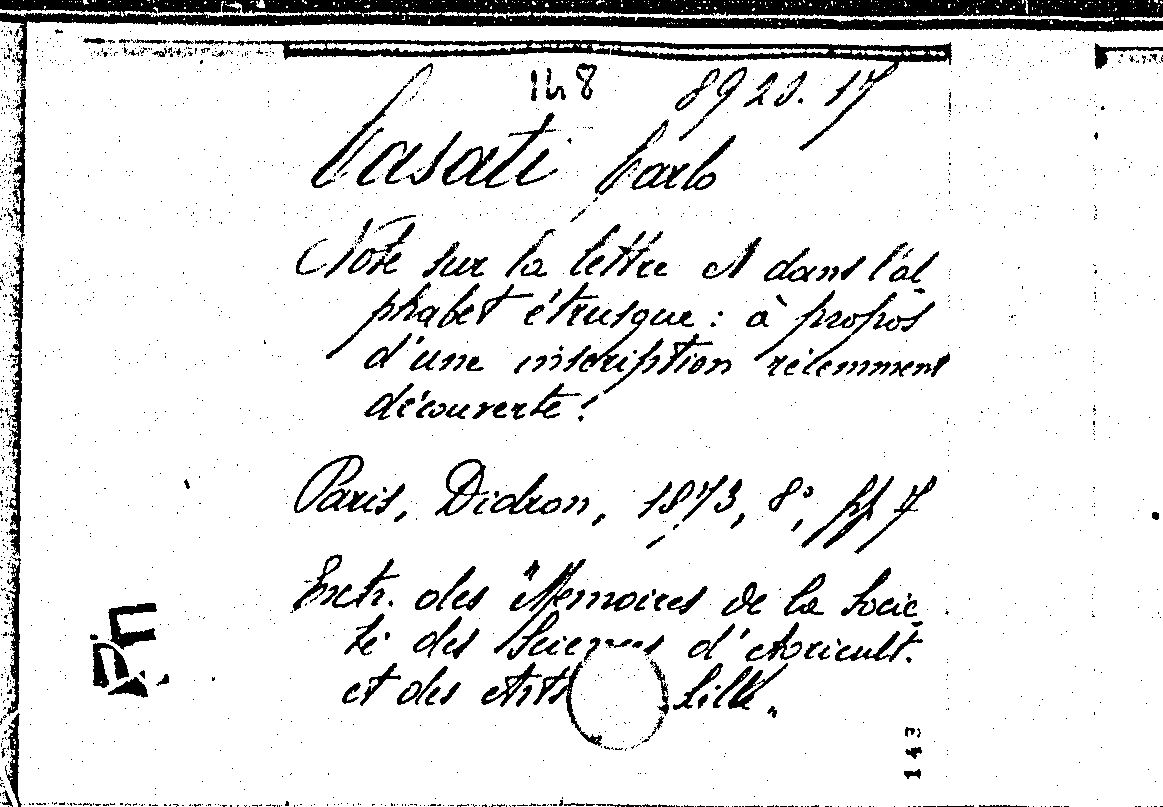 148 8923.17
Casati Carlo
Note sur la lettre A dans l'al
phabet étrusque : à propos
d'une inscription récemment
découverte.
Paris, Didron, 1873, 8°, pp 7
Extr. des "Memoires de la Socie
té des Sciences d'Agricult.
et des Arts Lille„
143